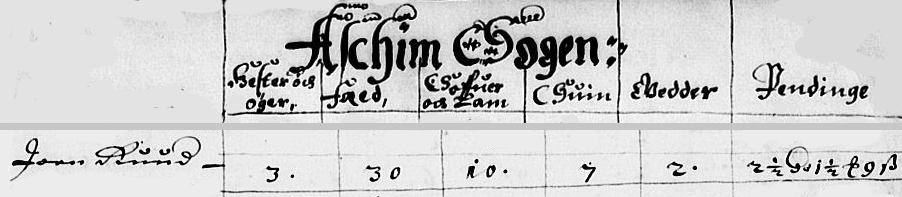 Aschim Sogen:
Hester och oger, Fæed, Soffuer och Lam Suin Wedder Pendinge
Joen Ruud — 3. 30 10. 7 2. 2½ 1½ 9 ß